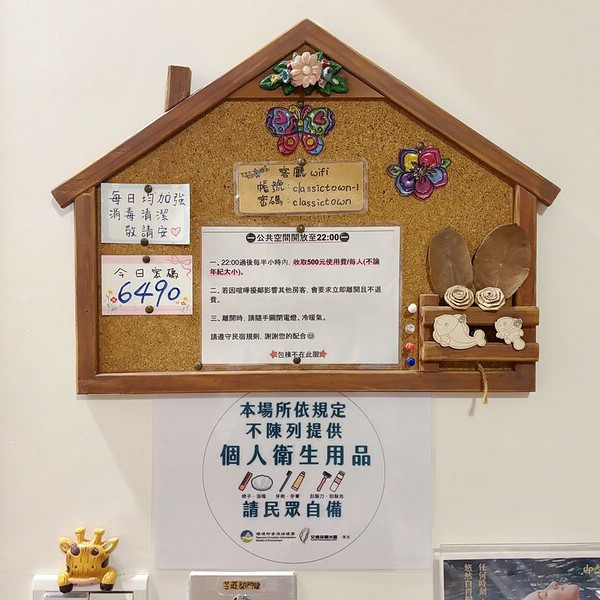 客廳 wifi
帳號：classictown-1
密碼：classictown
每日均加強
消毒清潔
敬請安♡
今日密碼
6490
公共空間開放至22:00
一、22:00過後每半小時內, 收取500元使用費/每人(不論
年紀大小)。
二、若因喧嘩擾鄰影響其他房客, 會要求立即離開且不退
費。
三、離開時, 請隨手關閉電燈、冷暖氣。
請遵守民宿規則, 謝謝您的配合☺
包棟不在此限
本場所依規定
不陳列提供
個人衛生用品
梳子、浴帽 牙刷、牙膏 刮鬍刀、刮鬍泡
請民眾自備
環境部資源循環署
交通部觀光署
廣告
任何時刻
悠然自得
dp